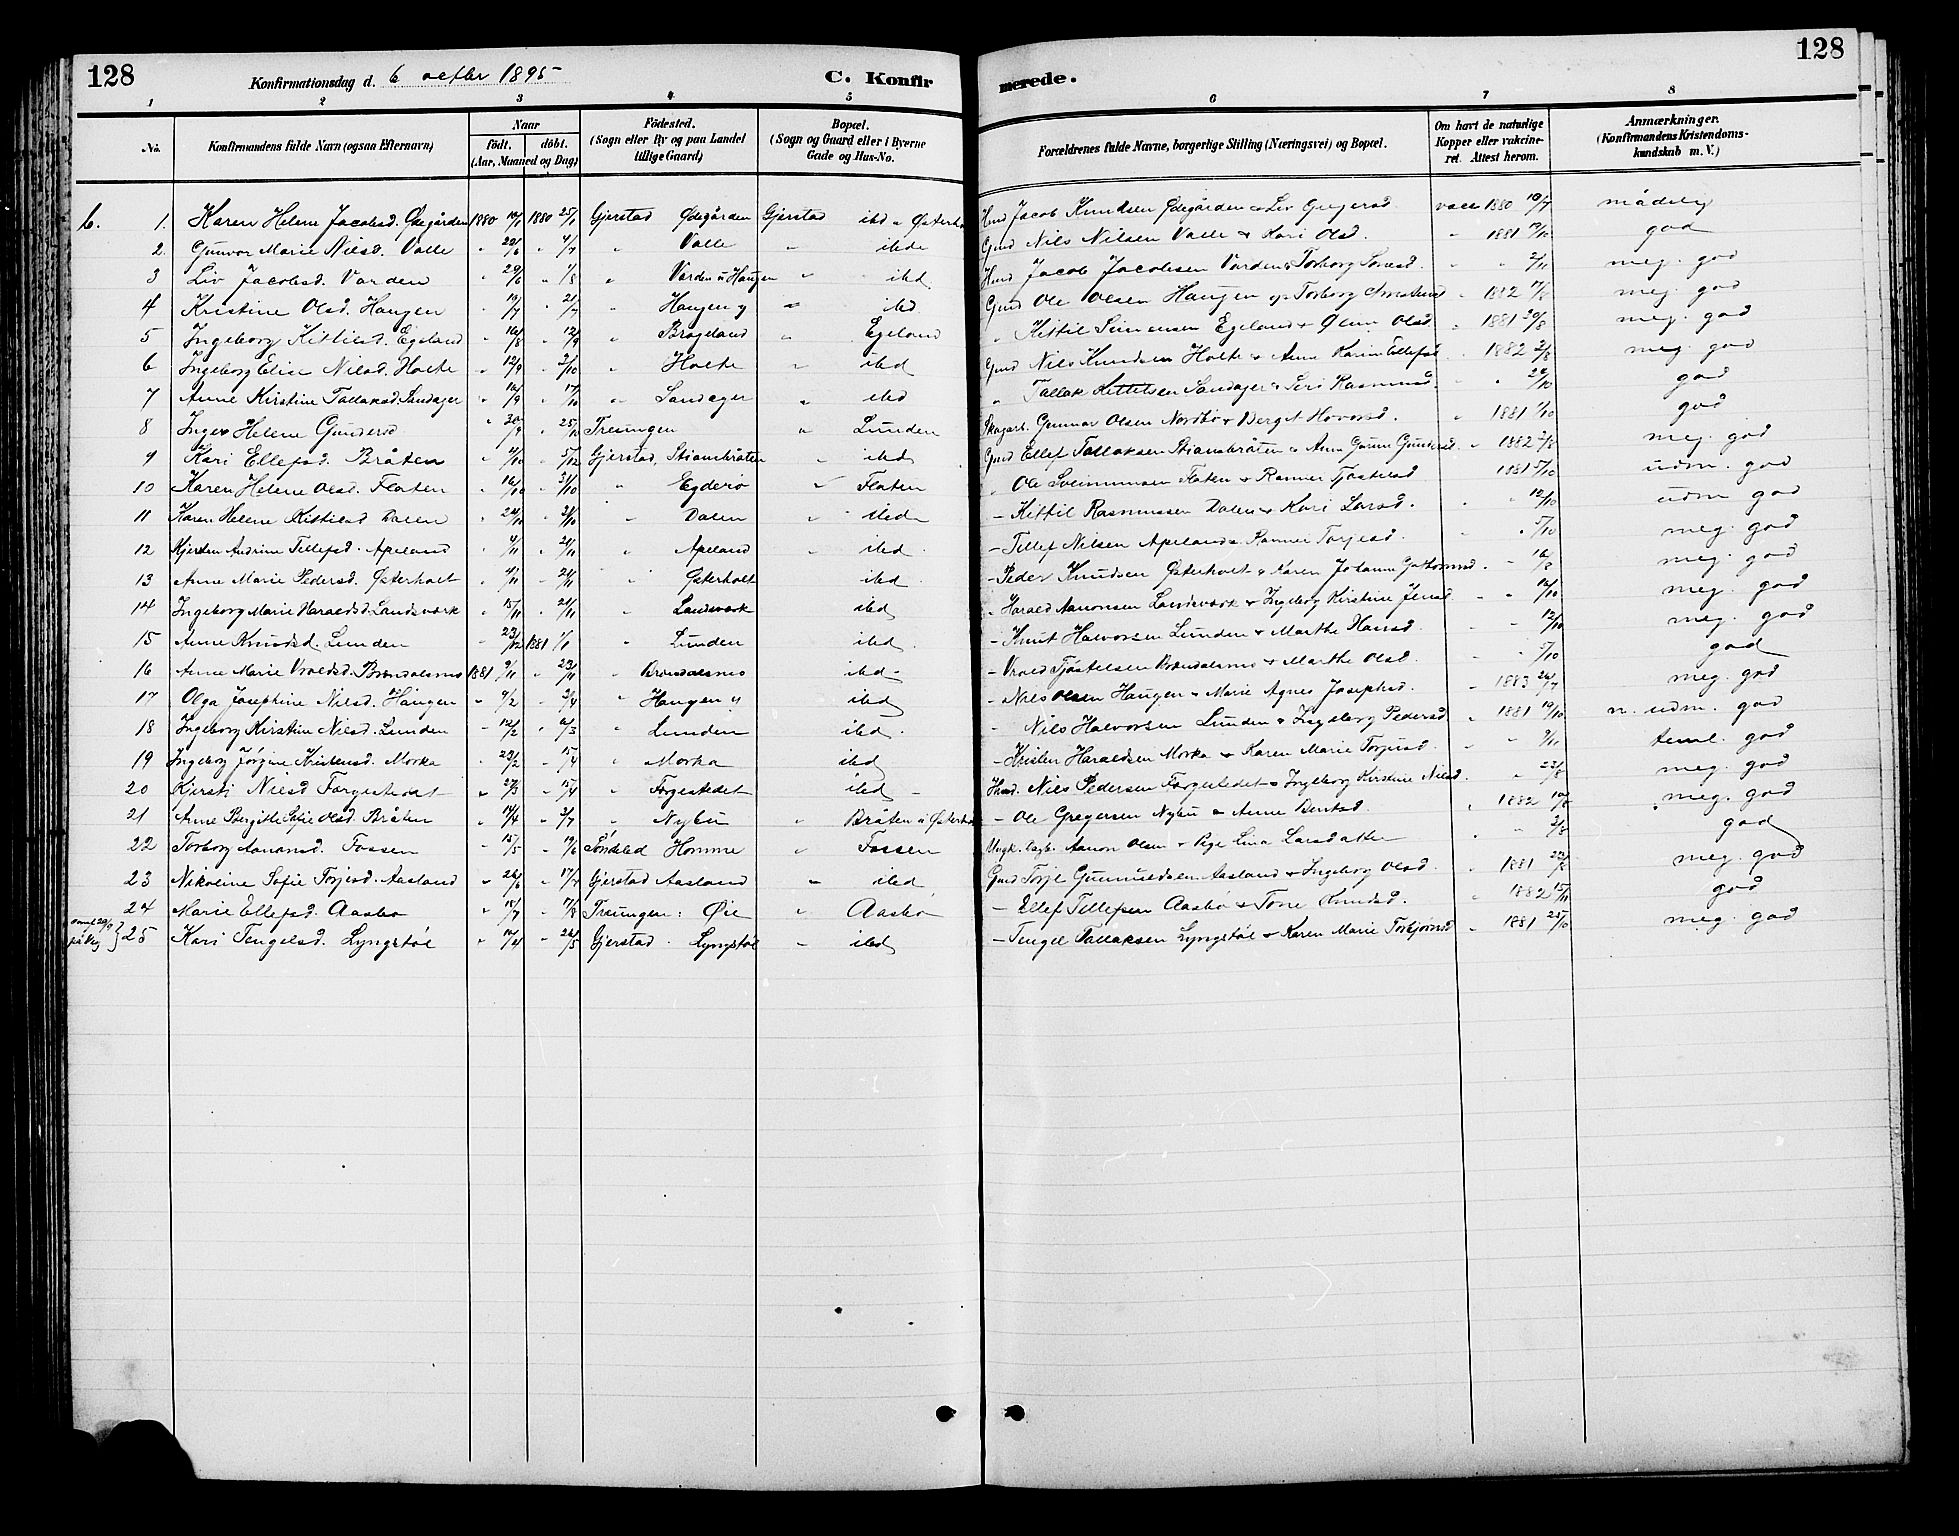 128
Konfirmationsdag d. 6 octbr 1895
C. Konfir
merede.
128
1 2 3 4 5 6 7 8
No.
Konfirmandens fulde Navn (ogsaa Efternavn)
Naar
födt. döbt.
(Aar, Maaned og Dag)
Födested.
(Sogn eller By og paa Landet
tillige Gaard)
Bopæl.
(Sogn og Gaard eller i Byerne
Gade og Hus-No.
Forældrenes fulde Navne, borgerlige Stilling (Næringsvei) og Bopæl.
Om havt de naturlige
Kopper eller vakcine-
ret. Attest herom.
Anmærkninger.
(Konfirmandens Kristendoms-
kundskab m. V.)
6. 1. Karen Helene Jacobsd. Ødegården 1880 1880 25/7 Gjerstad Ødegården Gjerstad ibd Hmd Jacob Knudsen Ødegården & Liv Gregersd vacc 1880 10/7 mådelig
2. Gunvor Marie Nilsd. Valle " 22/6 " 4/7 " Valle " ibd Gmd Nils Nilsen Valle & Kari Olsd. " 1881 god
3 Liv Jacobsd. Varden " 29/6 " 1/8 " Varden u Haugen " ibd Hmd Jacob Jacobsen Varden & Torborg " " 2/11 meg. god
4 Kristine Olsd. Haugen " 19/7 " 21/7 " Haugen y " ibd Gmd Ole Olsen Haugen & Torborg " 1882 meg. god
5 Ingeborg Kittilsd. Egeland " 16/8 " 12/9 " Brageland " Egeland " Kittil Simonsen Egeland & Olsd " 1881 20/8 meg. god
6 Ingeborg Elise Nilsd. Holte " 12/9 " 3/10 " Holte " ibd Gmd Nils Knudsen Holte & Anne Karine Ellefsd " 1882 2/8 meg. god
7 Anne Kirstine Tallaksd. Sandager " 16/9 " 17/10 " Sandager " ibd " Tallak Kittelsen Sandager & Siri Rasmusd. " " god
8 Inger Helene Gundersd " 30/9 " 25/10 Treungen " Lunden Gunnar Olsen Nordbö & Bergit Hovorsd. " 1881 god
9 Kari Ellefsd. Bråten " 4/10 " 5/12 Gjerstad, Stiansbråten " ibd Gmd Ellef Tallaksen Stiansbråten & Anne Gundersd. " 1882 2/8 meg. god
10 Karen Helene Olsd. Flaten " 16/10 " 31/10 " Egderö " Flaten " Ole Sveinunsen Flaten & Tjöstilsd 1881 5/10 udm. god
11 Karen Helene Kittilsd Dalen " 24/10 " 31/10 " Dalen " ibd - Kittil Rasmussen Dalen & Kari Larsd. " 12/10 udm god
12 Kjersten Andrine Tellefsd. Apeland " 4/11 " 21/11 " Apeland " ibd - Tellef Nilsen Apeland & Torjesd. " 5/10 meg. god
13 Anne Marie Pedersd. Østerholt " 4/11 " 21/11 " Østerholt ibd - Peder Knudsen Østerholt & Karen Johanne " 16/8 meg. god
14 Ingeborg Marie Haraldsd. Landsværk " 15/11 " 21/11 " Landsværk ibd " Harald Aanonsen Landsværk & Ingeborg Kirstine Jensd " " 16/10 meg. god
15 Anne Knudsd. Lunden " 23/12 1881 1/1 " Lunden ibd - Knut Halvorsen Lunden & Marthe Hansd. " " 12/10 meg. god
16 Anne Marie Vraldsd. Brøndalsmo 1881 9/11 " 23/11 " Brøndalsmo ibd - Vrald Tjöstelsen Brøndalsmo & Marthe Olsd. " " 5/10 god
17 Olga Josephine Nilsd. Haugen " 9/2 " 3/4 " Haugen y ibd - Nils Olsen Haugen & Marie Agnes Josephsd. " 1883 26/7 meg. god
18 Ingeborg Kirstine Nilsd. Lunden " 12/2 " 6/3 " Lunden ibd. - Nils Halvorsen Lunden & Ingeborg Pedersd " 1881 19/10 n. udm. god
19 Ingeborg Jörgine Kristensd. Morka " 23/2 " 15/4 " Morka ibd - Kristen Haraldsen Morka & Karen Marie Torjusd. " " 9/11 teml. god
20 Kjersti Nilsd Færgestedet " 27/3 " 15/4 " Færgestedet ibd Hmd. Nils Pedersen Færgestedet & Ingeborg Kirstine Nilsd. " 22/8 meg. god
21 Anne Birgitte Sofie Olsd. Bråten " 14/4 " 3/7 " Nybu " Bråten u Østerholt - Ole Gregersen Nybu & Anne Berntsd. " 1882 10/8 meg. god
22 Torborg Aanonsd. Fossen " 15/5 " 19/6 Söndeled Homme " Fossen Ungk. Aanon Olsen & Pige Lina Larsdatter " " 2/8 god
23 Nikoline Sofie Torjesd. Aasland " 26/6 " 17/7 Gjerstad Aasland " ibd Gmd Torje Gunnuldsen Aasland & Ingeborg Olsd. " 1881 22/8 meg. god
24 Marie Ellefsd. Aasbø " 18/7 " 17/8 Treungen: Öie " Aasbø - Ellef Tellefsen Aasbø & Tone Knudsd. " 1882 15/11 god
25 Kari Tengelsd. Lyngstöl " 14/4 " 26/5 Gjerstad Lyngstöl " ibd - Tengel Tallaksen Lyngstöl & Karen Marie Torbjörnsd " 1881 25/10 meg. god